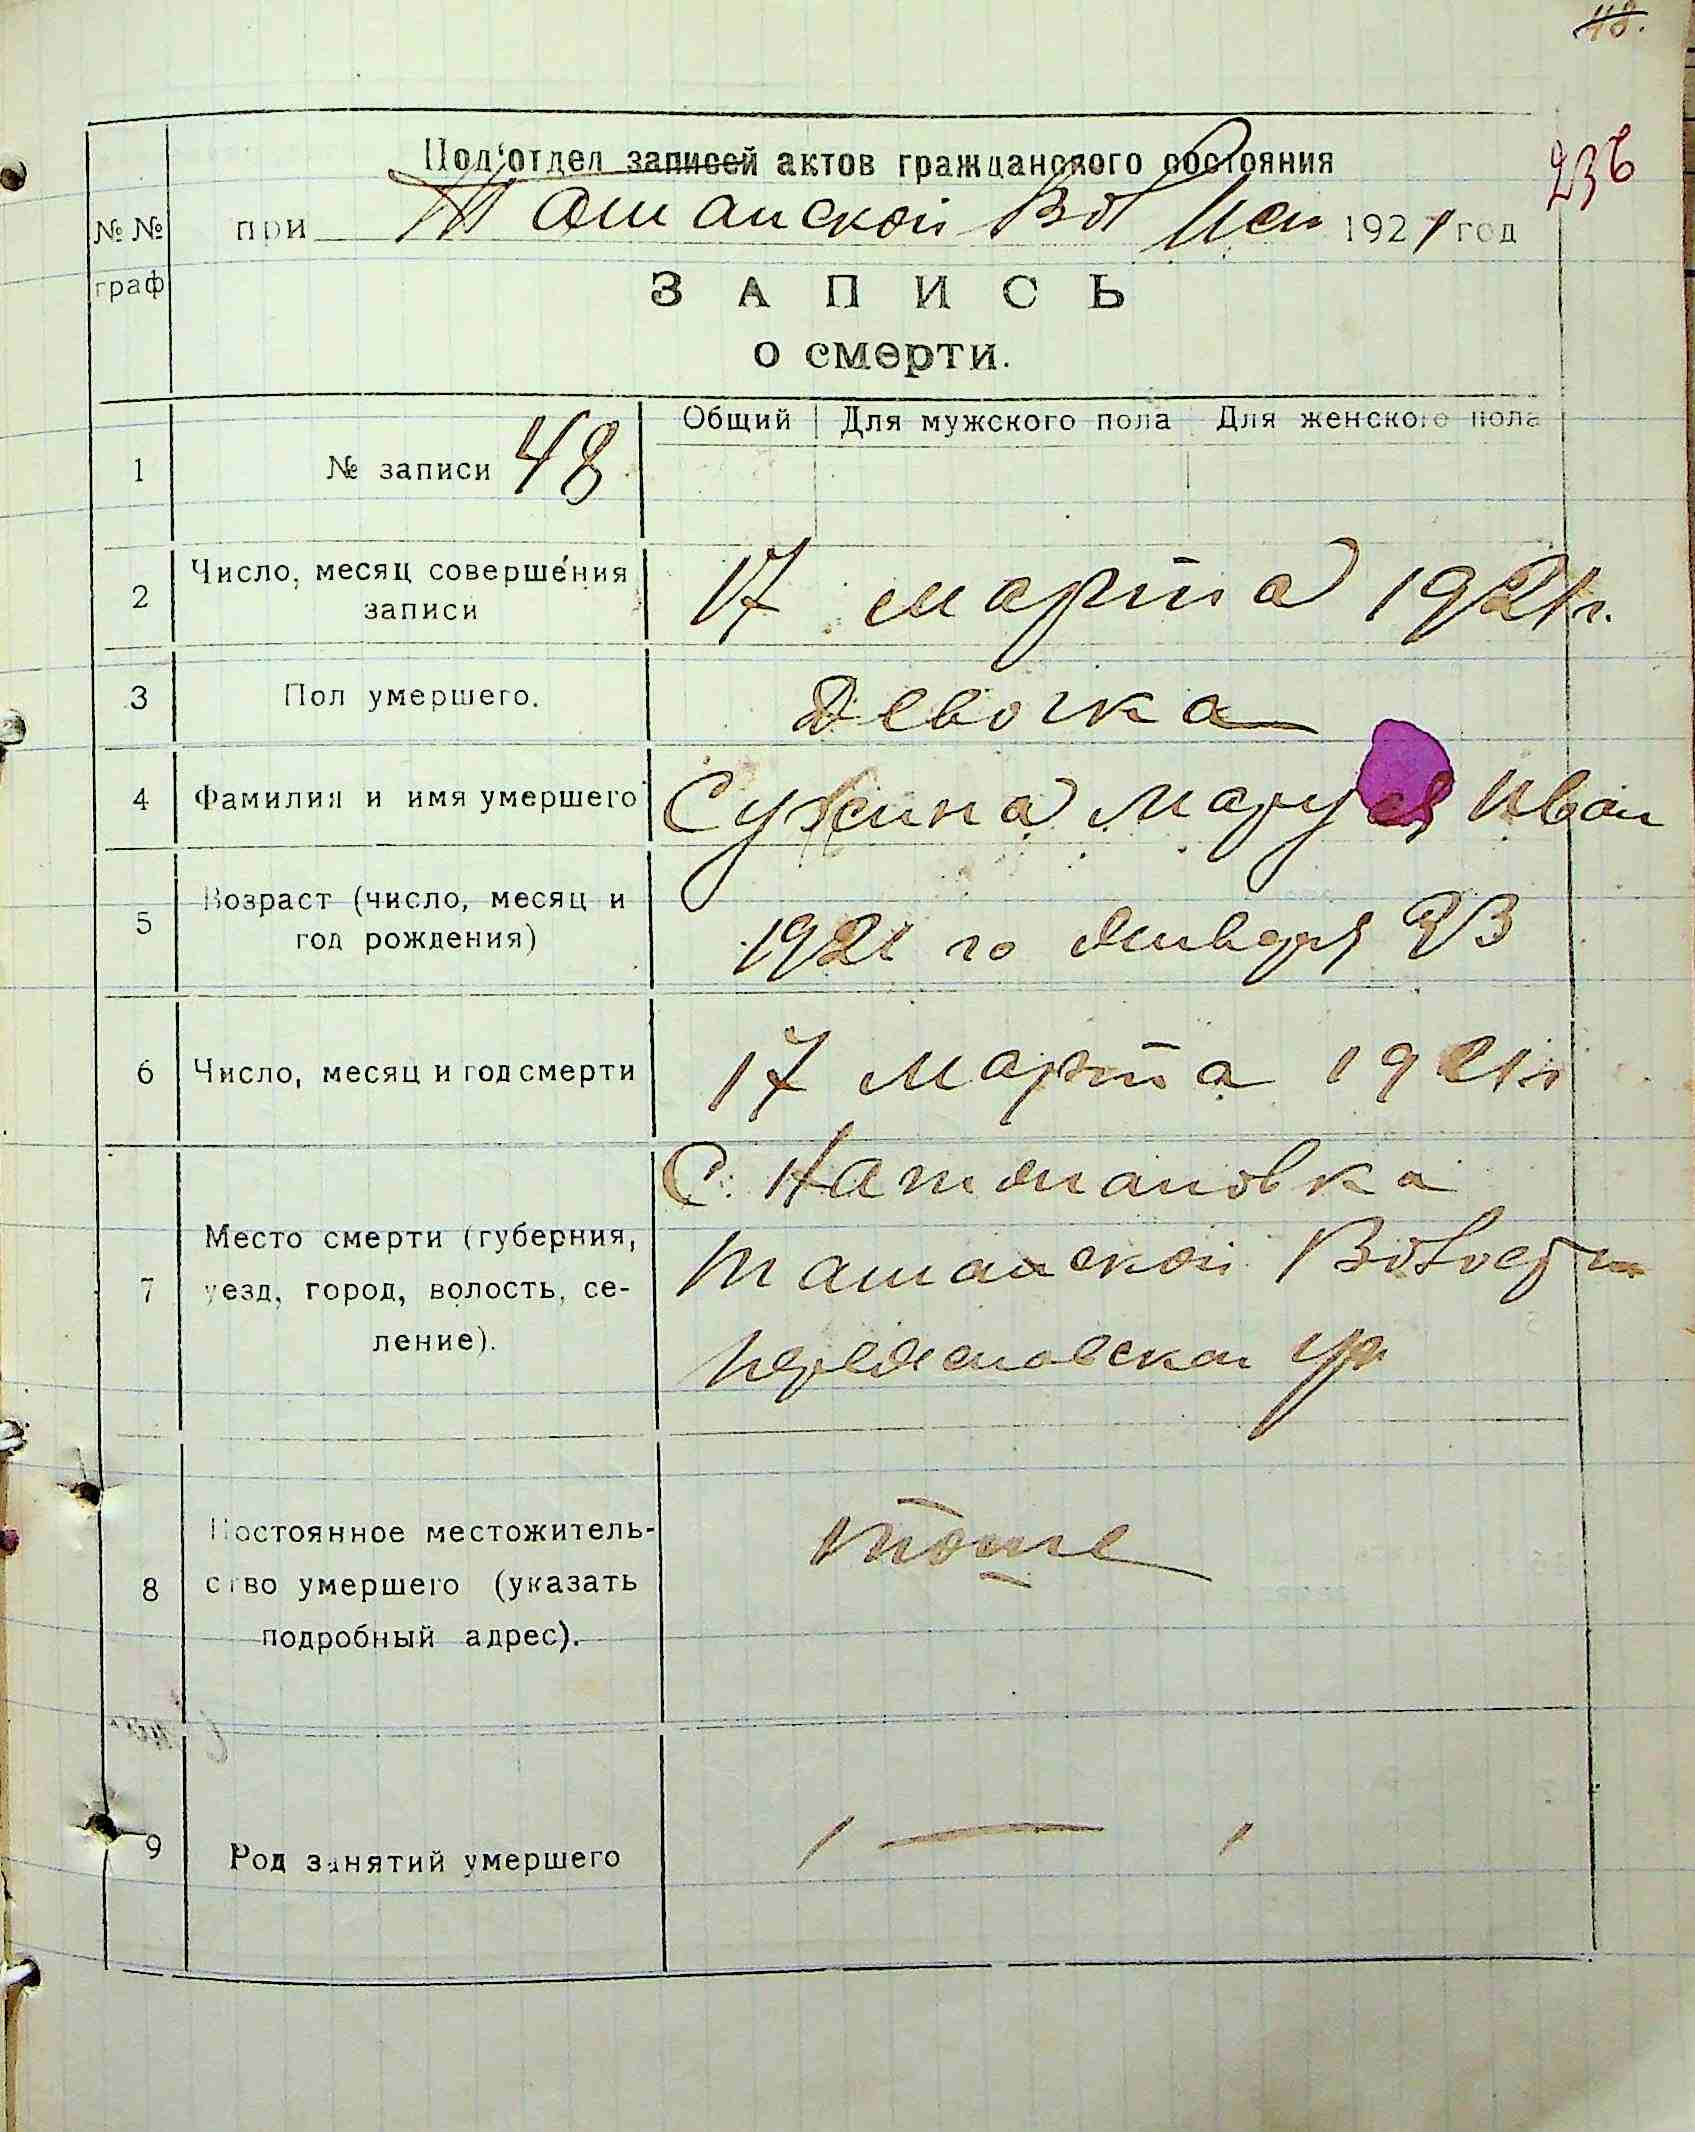 48.
Под'отдел записей актов гражданского состояния
236
№№ граф
при Ташанской Вол Исп 1921 год
ЗАПИСЬ
о смерти.
Общий Для мужского пола Для женского пола
1 № записи 48
2 Число, месяц совершения записи
17 марта 1921 г.
3 Пол умершего.
Девочка
4 Фамилия и имя умершего
Маруся Иван
5 Возраст (число, месяц и год рождения)
1921 го Января 23
6 Число, месяц и год смерти
17 марта 1921 г
7 Место смерти (губерния, уезд, город, волость, селение).
С.
Ташанской Волости
8 Постоянное местожительство умершего (указать подробный адрес).
тоже
9 Род занятий умершего